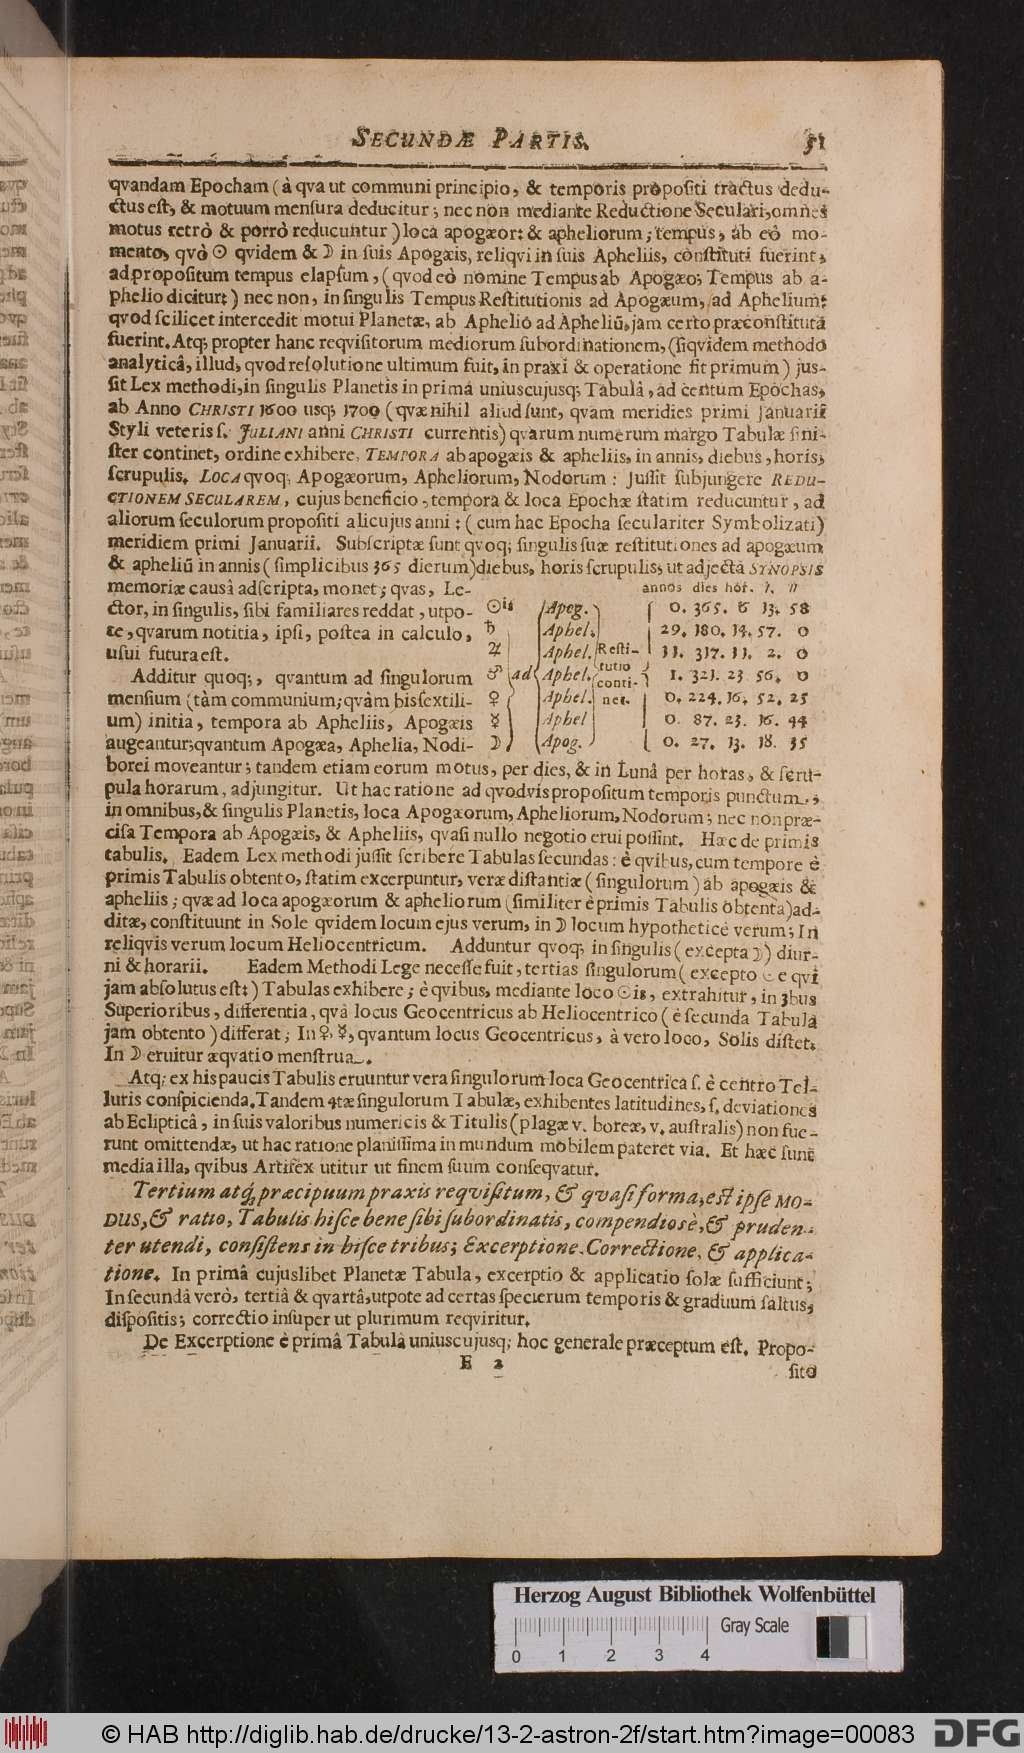 SECUNDÆ PARTIS. 51
qvandam Epocham (à qva ut communi principio, & temporis propositi tractus dedu-
ctus est, & motuum mensura deducitur; nec non mediante Reductione Seculari, omnes
motus retrò & porrò reducuntur) loca apogæor: & apheliorum; tempus, ab eò mo-
mento, qvò ☉ qvidem & ☽ in suis Apogæis, reliqvi in suis Apheliis, constituti fuerint,
ad propositum tempus elapsum, (qvod eò nomine Tempus ab Apogæo; Tempus ab a-
phelio dicitur:) nec non, in singulis Tempus Restitutionis ad Apogæum, ad Aphelium:
qvod scilicet intercedit motui Planetæ, ab Aphelio ad Apheliũ, jam certo præconstituta
fuerint. Atq; propter hanc reqvisitorum mediorum subordinationem, (siqvidem methodo
analyticâ, illud, qvod resolutione ultimum fuit, in praxi & operatione fit primum) jus-
sit Lex methodi, in singulis Planetis in primâ uniuscujusq; Tabulâ, ad centum Epochas,
ab Anno CHRISTI 1600 usq; 1700 (qvæ nihil aliud sunt, qvam meridies primi Januarii
Styli veteris s. JULIANI anni CHRISTI currentis) qvarum numerum margo Tabulæ sini-
ster continet, ordine exhibere, TEMPORA ab apogæis & apheliis, in annis, diebus, horis,
scrupulis. LOCA qvoq; Apogæorum, Apheliorum, Nodorum: Jussit subjungere REDU-
CTIONEM SECULAREM, cujus beneficio, tempora & loca Epochæ statim reducuntur, ad
aliorum seculorum propositi alicujus anni: (cum hac Epocha seculariter Symbolizati)
meridiem primi Januarii. Subscriptæ sunt qvoq; singulis suæ restitutiones ad apogæum
& apheliũ in annis (simplicibus 365 dierum) diebus, horis scrupulis, ut adjecta SYNOPSIS
memoriæ causâ adscripta, monet; qvas, Le-
ctor, in singulis, sibi familiares reddat, utpo-
te, qvarum notitia, ipsi, postea in calculo,
usui futura est.
Additur quoq;, qvantum ad singulorum
mensium (tàm communium; qvàm bissextili-
um) initia, tempora ab Apheliis, Apogæis
augeantur; qvantum Apogæa, Aphelia, Nodi-
annos dies hor. ′. ″
☉is Apog. 0. 365. 6 13. 58
♄ Aphel. 29. 180. 14. 57. 0
♃ Aphel. Resti- 11. 317. 11. 2. 0
♂ ad Aphel. tutio conti- 1. 321. 23 56. 0
♀ Aphel. net. 0. 224. 16. 52. 25
☿ Aphel 0. 87. 23. 16. 44
☽ Apog. 0. 27. 13. 18. 35
borei moveantur; tandem etiam eorum motus, per dies, & in Lunâ per horas, & scru-
pula horarum, adjungitur. Ut hac ratione ad qvodvis propositum temporis punctum,
in omnibus, & singulis Planetis, loca Apogæorum, Apheliorum, Nodorum; nec non præ-
cisa Tempora ab Apogæis, & Apheliis, qvasi nullo negotio erui possint. Hæc de primis
tabulis. Eadem Lex methodi jussit scribere Tabulas secundas: è qvibus, cum tempore è
primis Tabulis obtento, statim excerpuntur, veræ distantiæ (singulorum) ab apogæis &
apheliis; qvæ ad loca apogæorum & apheliorum (similiter è primis Tabulis obtenta) ad-
ditæ, constituunt in Sole qvidem locum ejus verum, in ☽ locum hypotheticè verum; In
reliqvis verum locum Heliocentricum. Adduntur qvoq; in singulis (excepta ☽) diur-
ni & horarii. Eadem Methodi Lege necesse fuit, tertias singulorum (excepto ☉ e qvi
jam absolutus est:) Tabulas exhibere; è qvibus, mediante loco ☉is, extrahitur, in 3bus
Superioribus, differentia, qvâ locus Geocentricus ab Heliocentrico (è secunda Tabulâ
jam obtento) differat; In ♀, ☿, qvantum locus Geocentricus, à vero loco, Solis distet.
In ☽ eruitur æqvatio menstrua.
Atq; ex his paucis Tabulis eruuntur vera singulorum loca Geocentrica s. è centro Tel-
luris conspicienda. Tandem 4tæ singulorum Tabulæ, exhibentes latitudines, s. deviationes
ab Eclipticâ, in suis valoribus numericis & Titulis (plagæ v. boreæ, v. australis) non fue-
runt omittendæ, ut hac ratione planissima in mundum mobilem pateret via. Et hæc sunt
media illa, qvibus Artifex utitur ut finem suum conseqvatur.
Tertium atq; præcipuum praxis reqvisitum, & qvasi forma, est ipse MO-
DUS, & ratio, Tabulis hisce bene sibi subordinatis, compendiosè, & pruden-
ter utendi, consistens in hisce tribus; Excerptione. Correctione, & applica-
tione. In primâ cujuslibet Planetæ Tabula, excerptio & applicatio solæ sufficiunt;
In secundâ verò, tertiâ & qvartâ, utpote ad certas specierum temporis & graduum saltus,
dispositis; correctio insuper ut plurimum reqviritur.
De Excerptione è primâ Tabulâ uniuscujusq; hoc generale præceptum est. Propo-
E 2
sito
Herzog August Bibliothek Wolfenbüttel
Gray Scale
0 1 2 3 4
© HAB http://diglib.hab.de/drucke/13-2-astron-2f/start.htm?image=00083 DFG